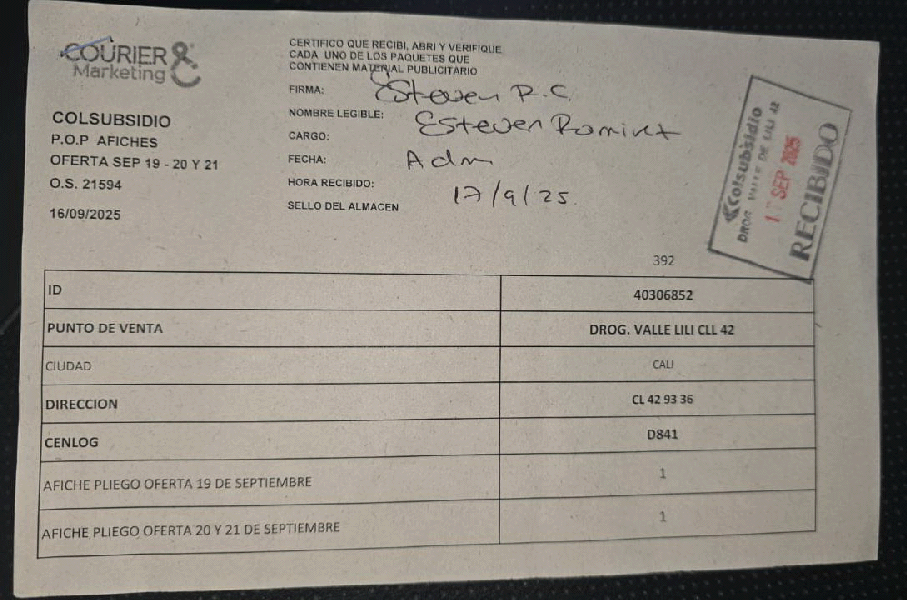 COURIER &
Marketing
COLSUBSIDIO
P.O.P AFICHES
OFERTA SEP 19 - 20 Y 21
O.S. 21594
16/09/2025
CERTIFICO QUE RECIBI, ABRI Y VERIFIQUE
CADA UNO DE LOS PAQUETES QUE
CONTIENEN MATERIAL PUBLICITARIO
FIRMA: Esteven R.C
NOMBRE LEGIBLE: Esteven Ramirez
CARGO: Adm
FECHA: 17/9/25.
HORA RECIBIDO:
SELLO DEL ALMACEN
Colsubsidio
DROG. VALLE DE LILI 42
SEP 2025
RECIBIDO
392
ID 40306852
PUNTO DE VENTA DROG. VALLE LILI CLL 42
CIUDAD CALI
DIRECCION CL 42 93 36
CENLOG D841
AFICHE PLIEGO OFERTA 19 DE SEPTIEMBRE 1
AFICHE PLIEGO OFERTA 20 Y 21 DE SEPTIEMBRE 1